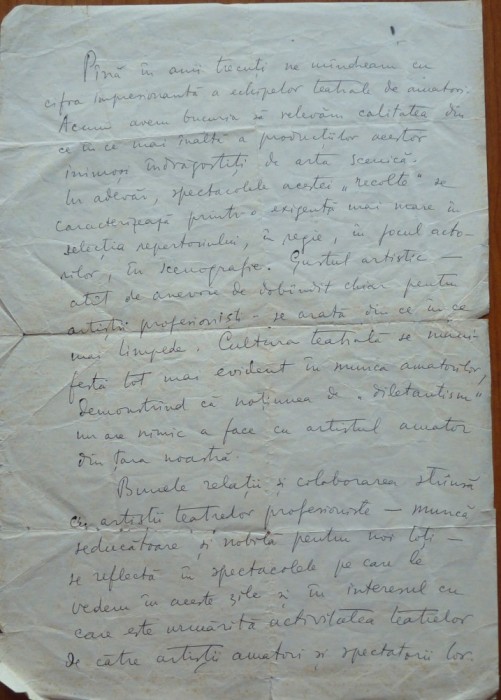 Pînă în anii trecuți ne mîndream cu
cifra impresionantă a echipelor teatrale de amatori.
Acum avem bucuria să relevăm calitatea din
ce în ce mai înaltă a producțiilor acestor
inimoși îndrăgostiți de arta scenică.
Într-adevăr, spectacolele acestei „recolte" se
caracterizează printr-o exigență mai mare în
selecția repertoriului, în regie, în jocul acto-
rilor, în scenografie. Gustul artistic —
atît de anevoie de dobîndit chiar pentru
artiștii profesioniști - se arată din ce în ce
mai limpede. Cultura teatrală se mani-
festă tot mai evident în munca amatorilor,
demonstrînd că noțiunea de „diletantism"
nu are nimic a face cu artistul amator
din țara noastră.
Bunele relații și colaborarea strînsă
cu artiștii teatrelor profesioniste — muncă
seducătoare și nobilă pentru noi toți —
se reflectă în spectacolele pe care le
vedem în aceste zile și în interesul cu
care este urmărită activitatea teatrelor
de către artiștii amatori și spectatorii lor.